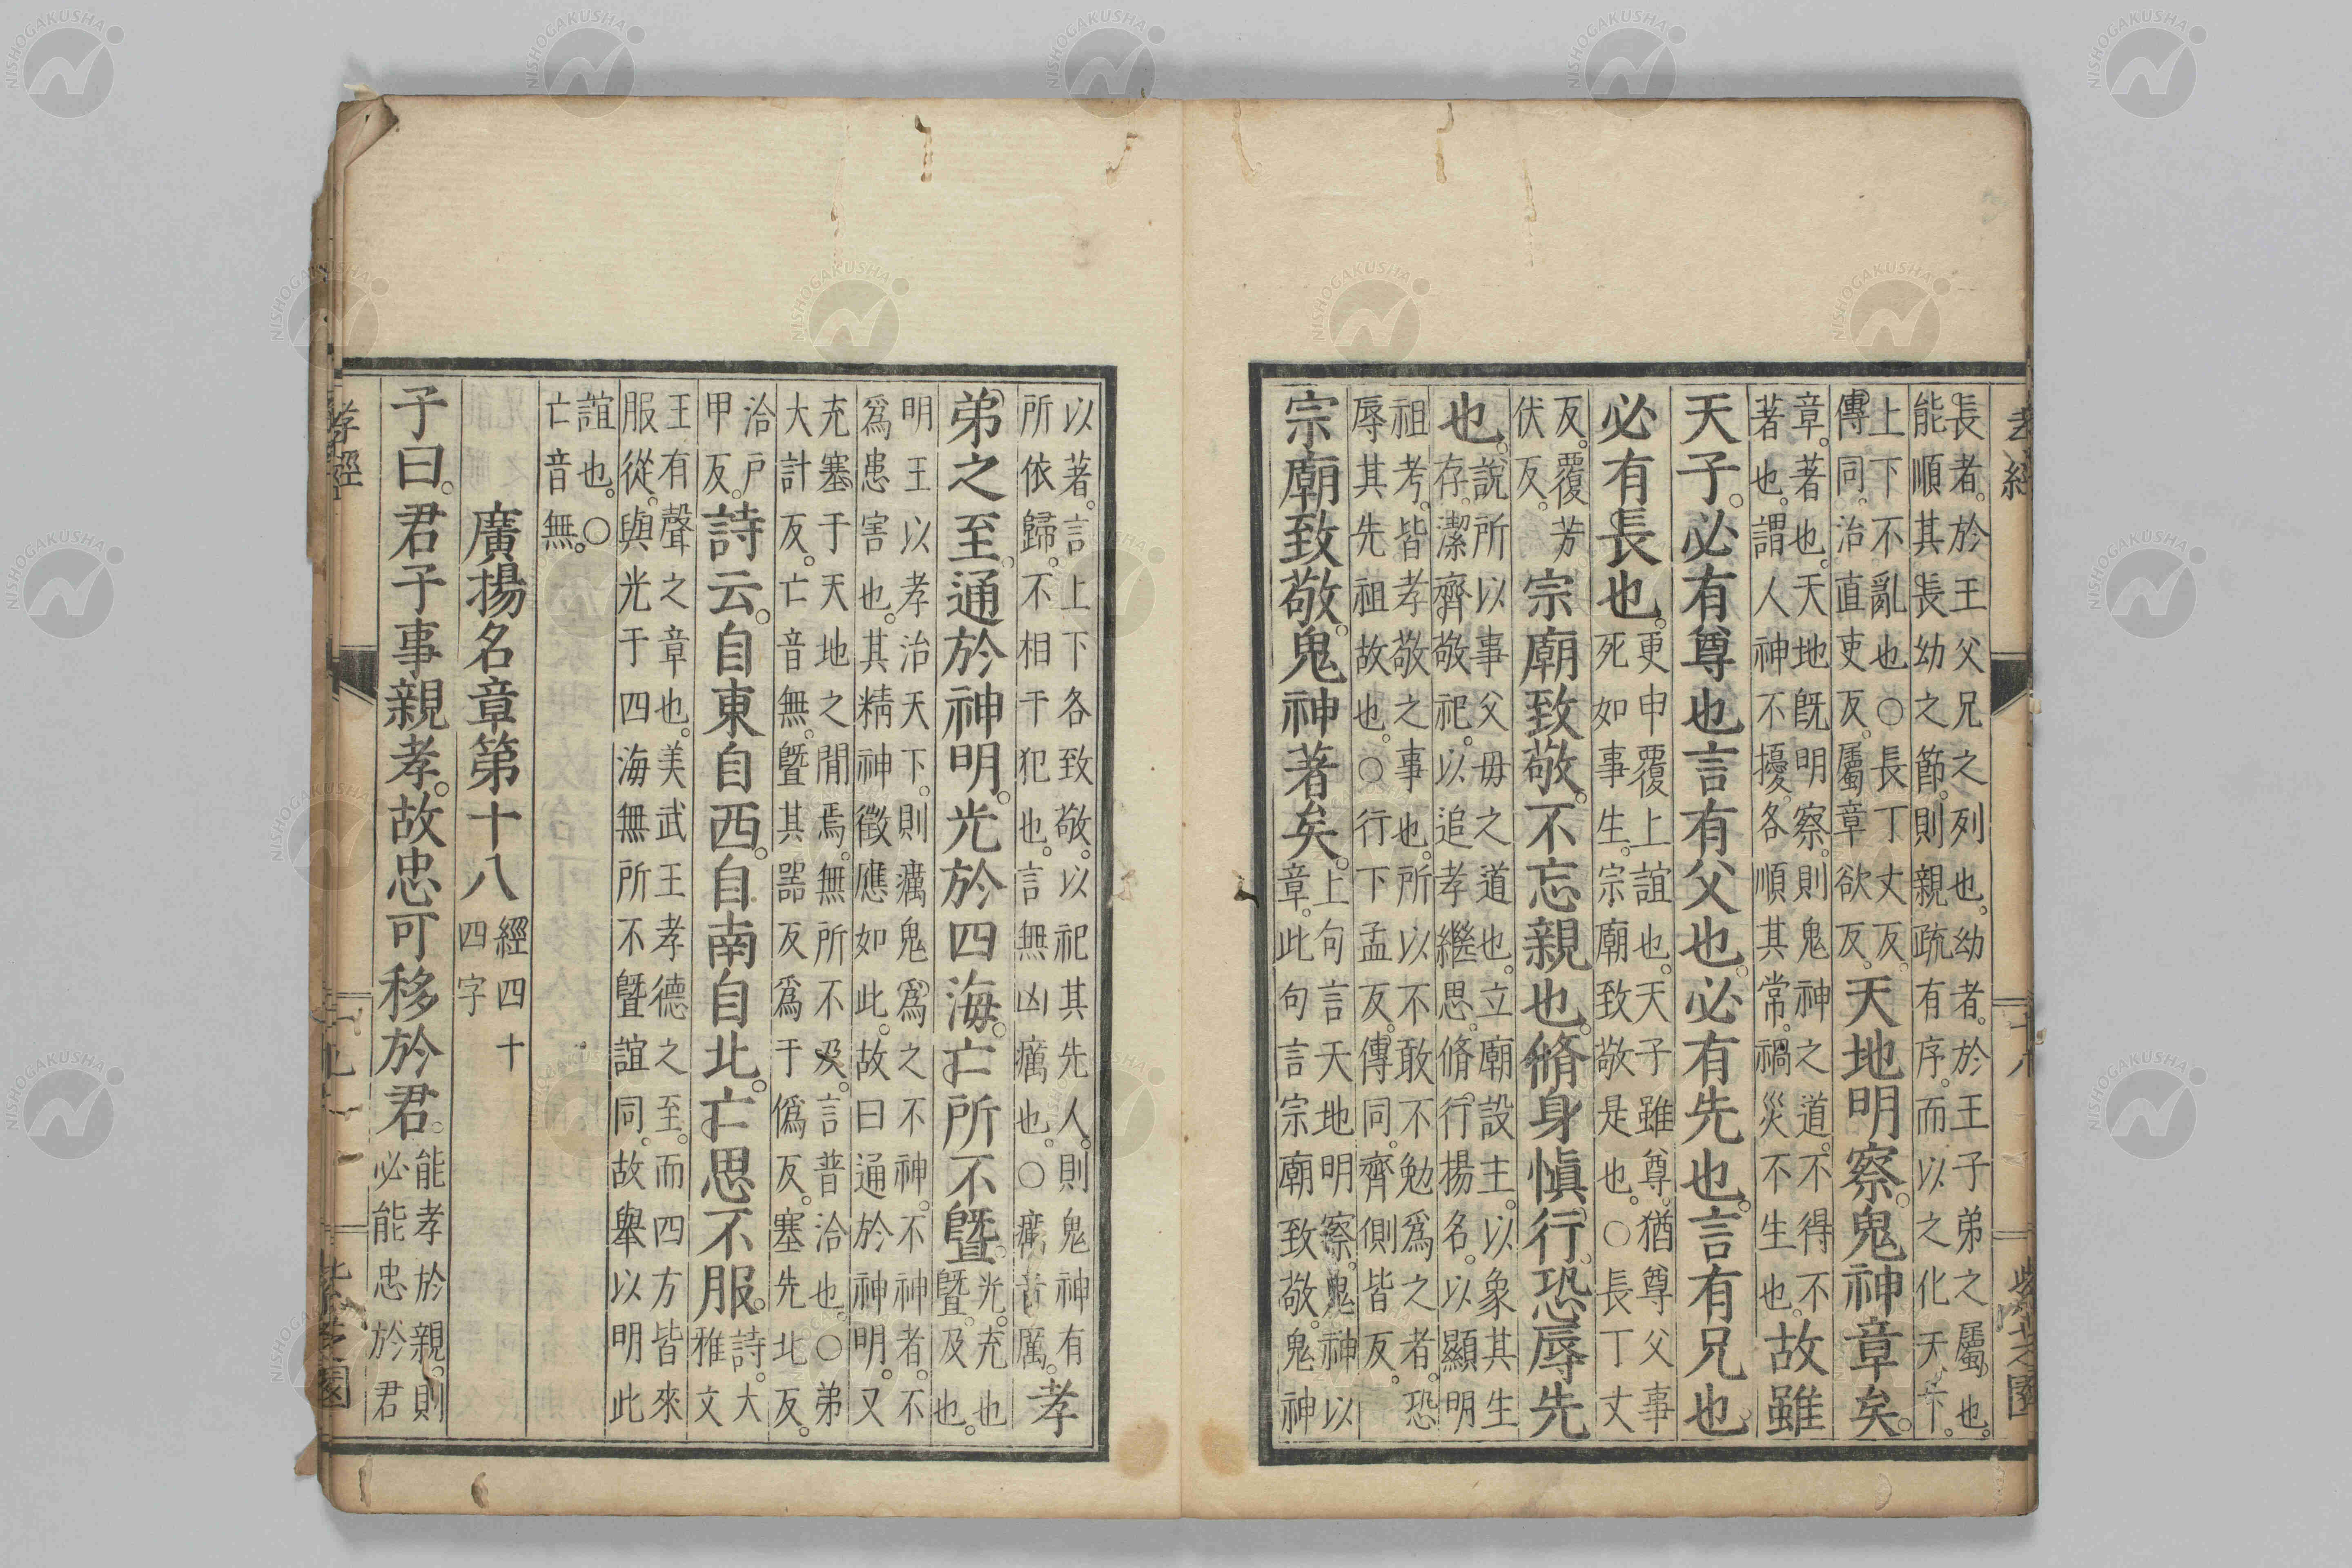 經 十八 紫芝園
長者。於王父兄之列也。幼者。於王子弟之屬也。
能順其長幼之節。則親疏有序。而以之化天下。
上下不亂也○長丁丈反。
傳同。治直吏反。屬章欲反。
天地明察。鬼神章矣。
章。著也。天地既明察。則鬼神之道。不得不
著也。謂人神不擾。各順其常。禍災不生也。
故雖
天子。必有尊也言有父也。必有先也。言有兄也。
必有長也。
更申覆上誼也。天子雖尊。猶尊父事
死如事生。宗廟致敬是也。○長丁丈
反。覆芳
伏反。
宗廟致敬。不忘親也。脩身愼行。恐辱先
也。
說所以事父母之道也。立廟設主。以象其生
存。潔齊敬祀。以追孝繼思。脩行揚名。以顯明
祖考。皆孝敬之事也。所以不敢不勉爲之者。恐
辱其先祖故也。○行下孟反。傳同。齊側皆反。
宗廟致敬。鬼神著矣。
上句言天地明察。鬼神以
章。此句言宗廟致敬。鬼神
以著。言上下各致敬。以祀其先人。則鬼神有
所依歸。不相干犯也。言無凶癘也。○癘音厲。
孝
弟之至。通於神明。光於四海。亡所不曁。
光。充也
曁。及也。
明王以孝治天下。則癘鬼爲之不神。不神者。不
爲患害也。其精神徵應如此。故曰通於神明。又
充塞于天地之間焉。無所不及。言普洽也。○弟
大計反。亡音無。曁其器反爲于僞反。塞先北反。
洽戶
甲反。
詩云。自東自西。自南自北。亡思不服。
詩。大
雅文
王有聲之章也。美武王孝德之至。而四方皆來
服從。與光于四海無所不曁誼同。故舉以明此
誼也。○
亡音無。
廣揚名章第十八
經四十
四字
子曰。君子事親孝。故忠可移於君。
能孝於親。則
必能忠於君
孝經 園